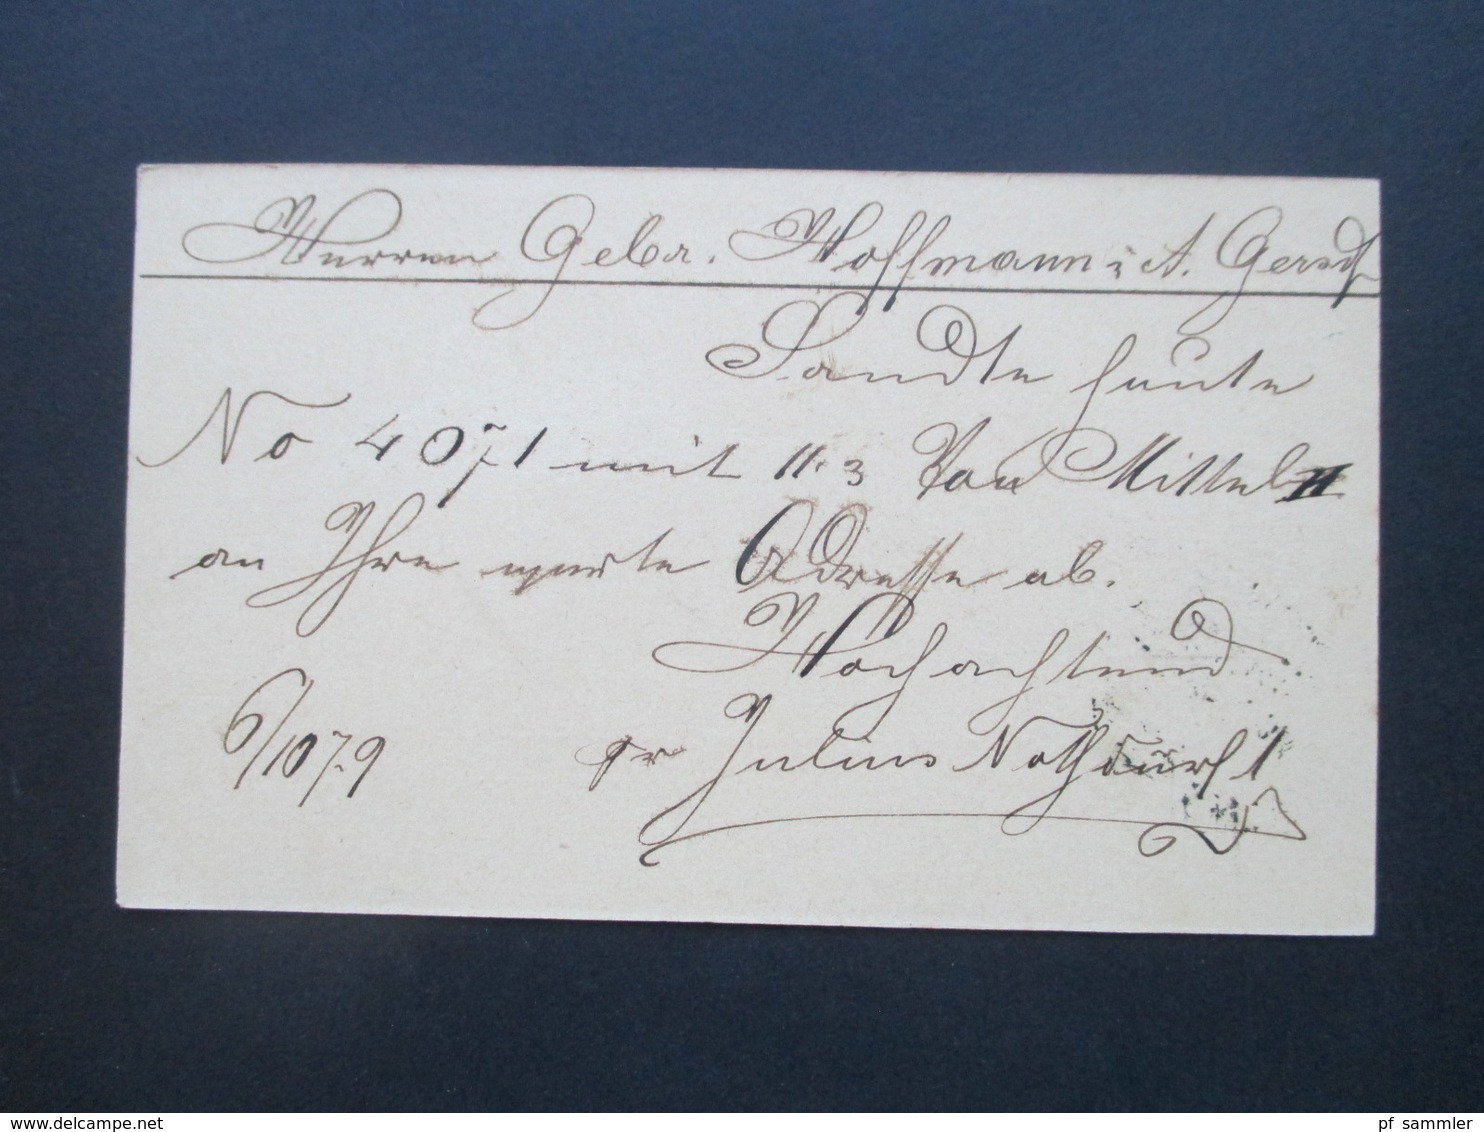 Herren Gebr. Hoffmann i. A. Gersd
Sandte heute
No 4071 mit 11.3 Mittel II
an Ihre werte Adresse ab.
Hochachtend
6/10 79 pr Julius Nothdurft
www.delcampe.net
pf_sammler